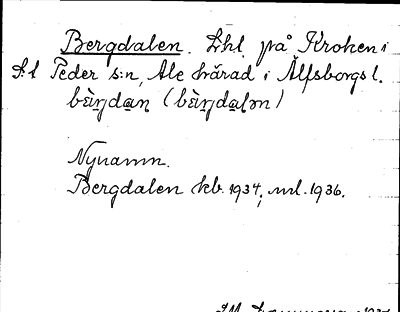 Bergdalen. Lhl. på Kroken i
S:t Peder s:n, Ale härad i Älfsborgs l.
bæ̀ŋdan (bæ̀ŋdalən)
Nynamn.
Bergdalen kb. 1934, ml. 1936.